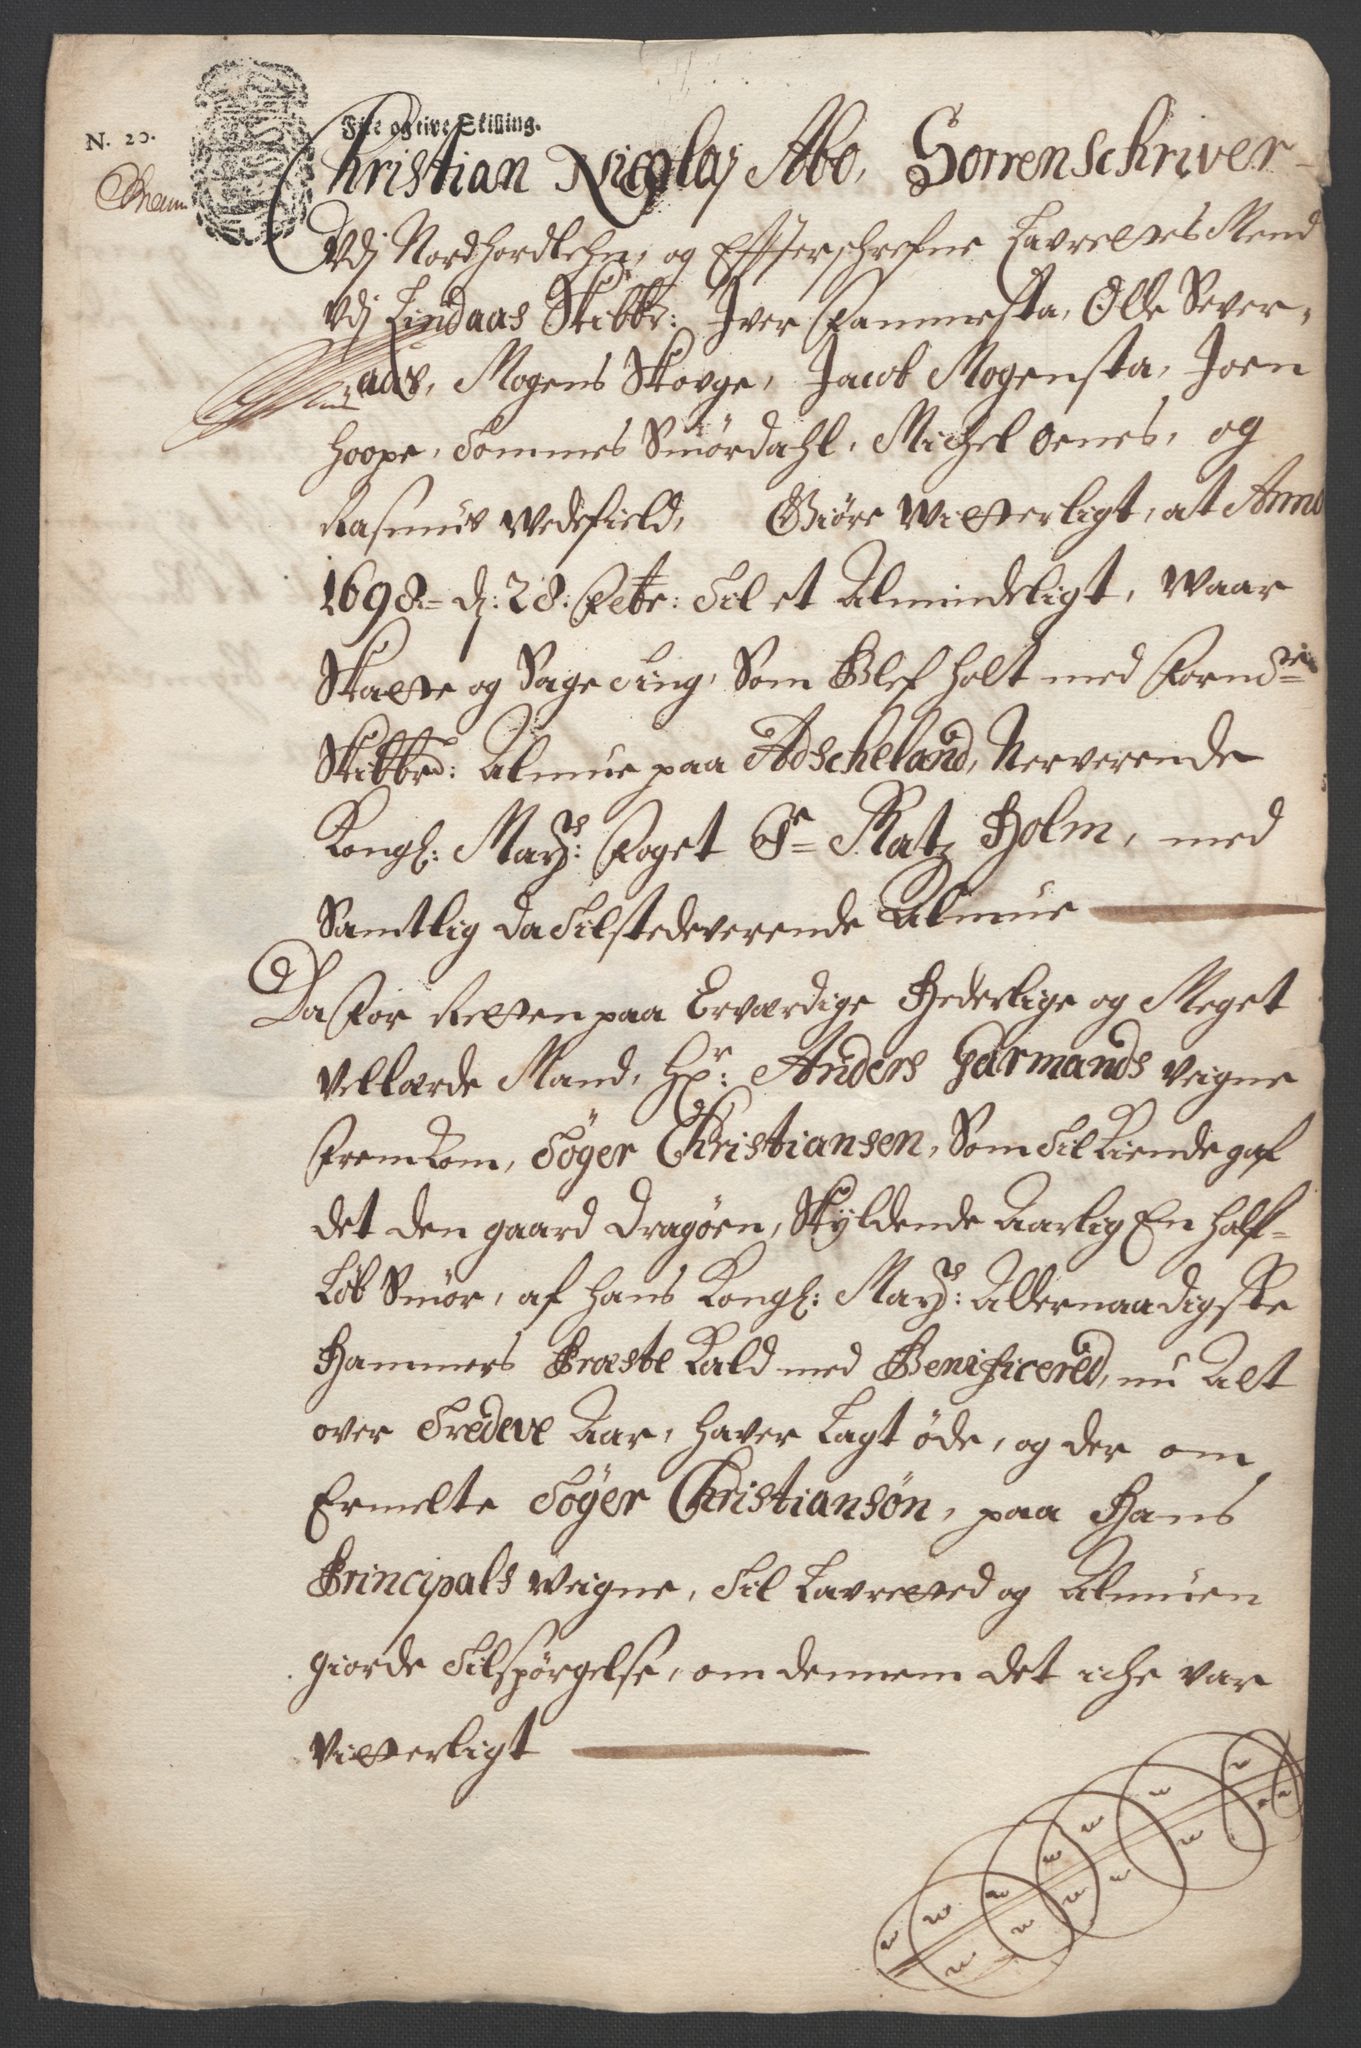 N. 20.
Fire og tive Skilling.
Christian Nicolaj Abo, Sorrenschriver
Vdj Nordhordlehn, og Effterschrefne Lavrettes Mend
Vdj Lindaas Skibbr: Iver Fammesta, Olle Sever-
aas, Mogens Skovge, Jacob Mogensta, Joen
Hoope, Tommes Smørdahl, Michel Oenes, og
Rasmus Wedefield, Giøre Witterligt, at Anno
1698 = d: 28: Febr: Til et Almindeligt, Waar
Skatte og Sage Ting, Som Blef holt med Forn:te
Skibbrd: Almue paa Adscheland, Nerverende
Kongl: May:ts Foget Sr Ratz Holm, med
Samtlig da Tilstedeverende Almue
Da For Retten paa Erværdige Hederlige og Meget
Vellærde Mand, Hr: Anders Garmands Veigne
Fremkom, Töger Christiansen, Som Tilkiende gaf
det den gaard Dragöen, Skyldende Aarlig En half-
Löb Smör, af hans Kongl: May:ts Allernaadigste
Hammers Præste Kald med Benificered, nu Alt
over Tredeve Aar, haver Lagt öde, og der om
Ermelte Töger Christiansön, paa Hans
Principals Weigne, Til Lavretted og Almuen
giorde Tilspörgelse, om dennem det iche var
Vitterligt